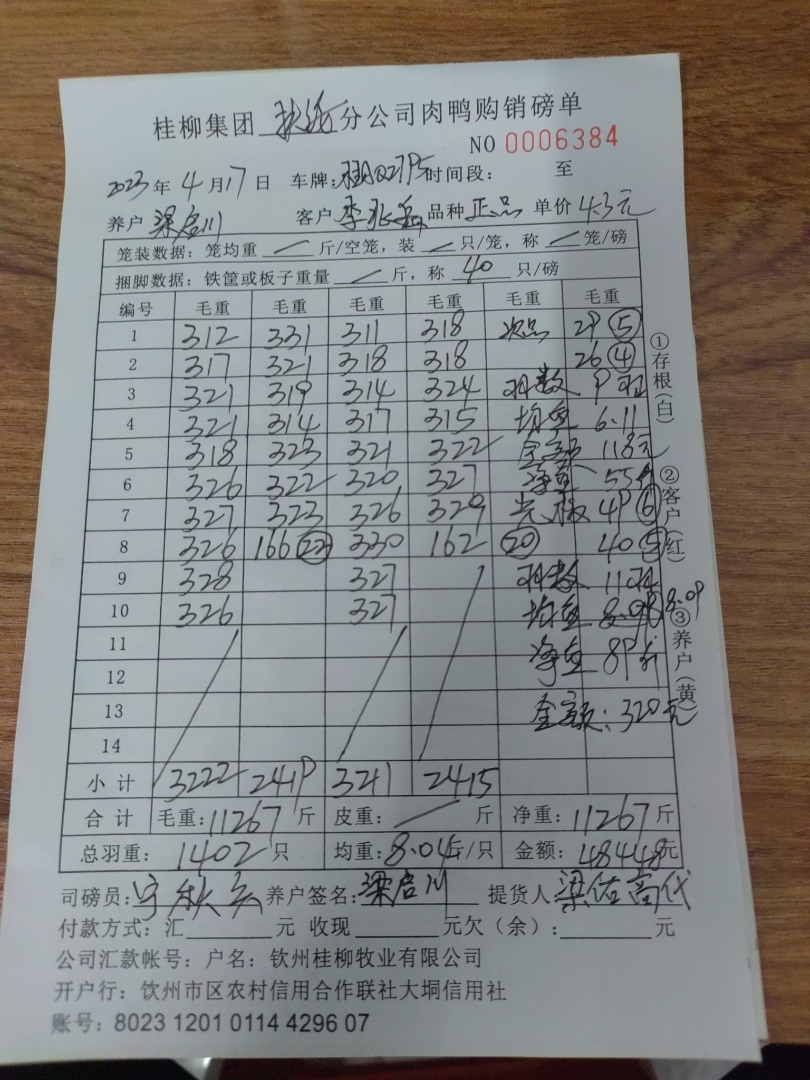 桂柳集团 钦海 分公司肉鸭购销磅单
NO 0006384
2023 年 4 月 17 日 车牌: 时间段: 至
养户 梁启川 客户 李 品种 正品 单价 4.3元
笼装数据: 笼均重 / 斤/空笼, 装 / 只/笼, 称 / 笼/磅
捆脚数据: 铁筐或板子重量 / 斤, 称 40 只/磅
编号 毛重 毛重 毛重 毛重 毛重 毛重
1 312 331 311 318 次品 29 ⑤
2 317 321 318 318 26 ④
3 321 319 314 324 羽数 9羽
4 321 314 317 315 均重 6.11
5 318 323 321 322 金额 118元
6 326 322 320 327 净重 55斤
7 327 323 326 329 光板 49 ⑥
8 326 166 ㉒ 330 162 ⑳ 40 ⑤
9 328 327 羽数 11羽
10 326 327 均重 8.09 8.09
11
12 净重 89斤
13 金额: 320元
14
小计 3222 2419 3211 2415
合计 毛重: 11267 斤 皮重: / 斤 净重: 11267 斤
总羽重: 1402 只 均重: 8.04 斤/只 金额: 48448元
司磅员: 宁秋 养户签名: 梁启川 提货人 梁佑高代
付款方式: 汇 元 收现 元欠(余): 元
公司汇款帐号: 户名: 钦州桂柳牧业有限公司
开户行: 钦州市区农村信用合作联社大垌信用社
账号: 8023 1201 0114 4296 07
①存根(白)
②客户(红)
③养户(黄)